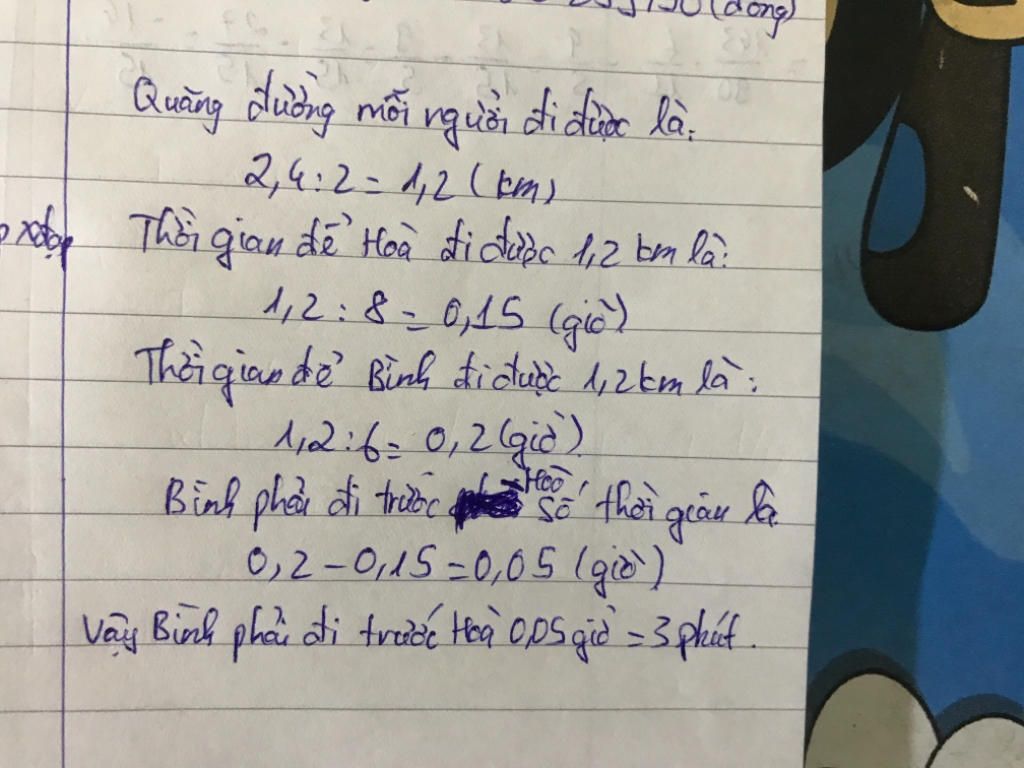 (đồng)
Quãng đường mỗi người đi được là:
2,4 : 2 = 1,2 (km)
Thời gian để Hoà đi được 1,2 km là:
1,2 : 8 = 0,15 (giờ)
Thời gian để Bình đi được 1,2 km là:
1,2 : 6 = 0,2 (giờ)
Bình phải đi trước Hoà số thời gian là
0,2 - 0,15 = 0,05 (giờ)
Vậy Bình phải đi trước Hoà 0,05 giờ = 3 phút.